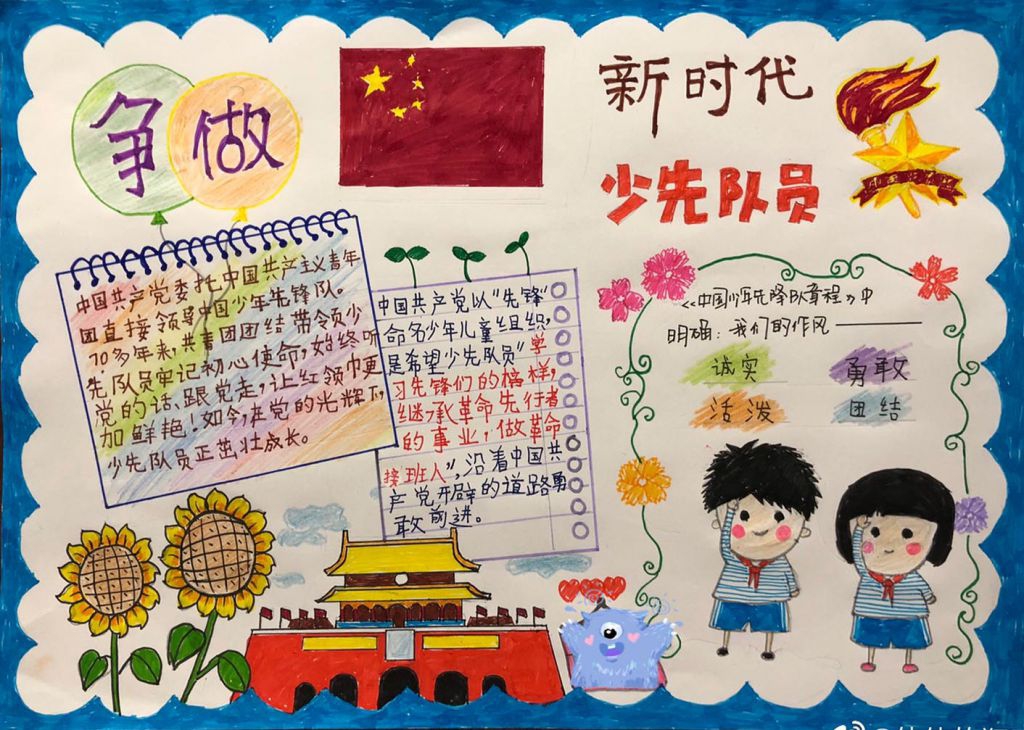 争做
新时代
少先队员
中国共产党委托中国共产主义青年
团直接领导中国少年先锋队。
70多年来,共青团团结带领少
先队员牢记初心使命,始终听
党的话、跟党走,让红领巾更
加鲜艳!如今,在党的光辉下,
少先队员正茁壮成长。
中国共产党以"先锋"
命名少年儿童组织,
是希望少先队员"学
习先锋们的榜样,
继承革命先行者
的事业,做革命
接班人",沿着中国共
产党开辟的道路勇
敢前进。
《中国少年先锋队章程》中
明确:我们的作风——
诚实 勇敢
活泼 团结